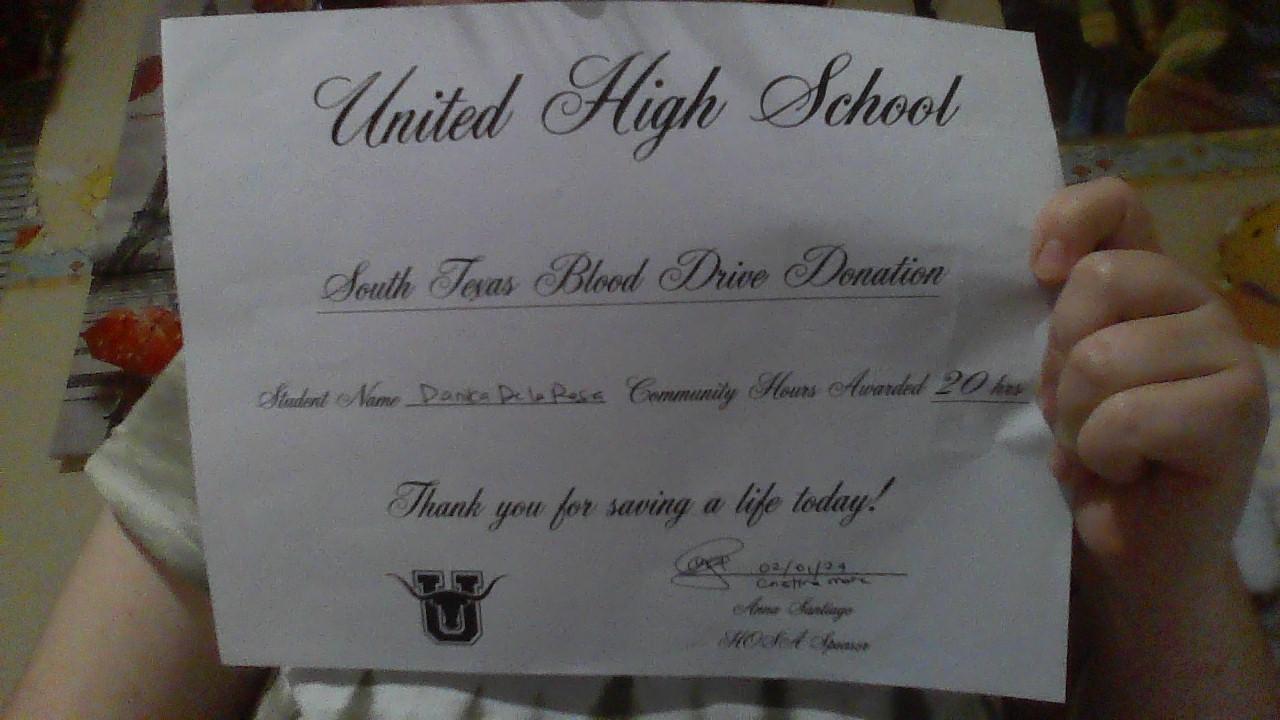 United High School
South Texas Blood Drive Donation
Student Name Danica De la Rosa Community Hours Awarded 20 hrs
Thank you for saving a life today!
U
02/01/24
Cristina
Anna Santiago
HOSA Sponsor